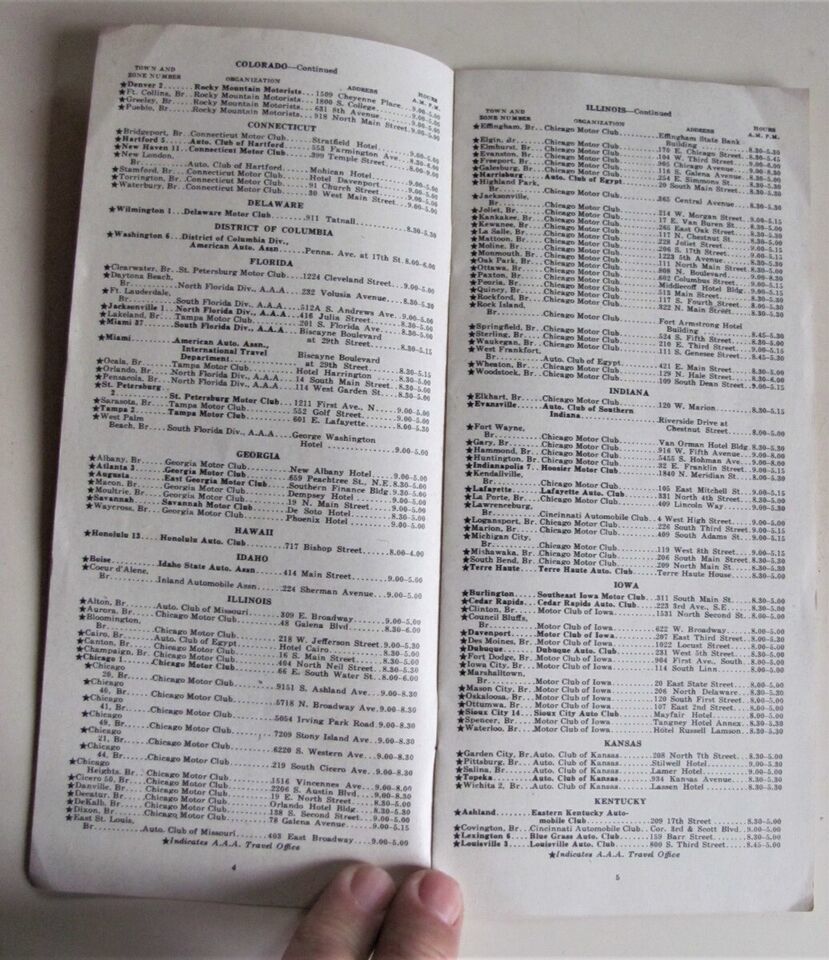 COLORADO—Continued
TOWN AND ZONE NUMBER ORGANIZATION ADDRESS HOURS A.M. P.M.
★Denver 2 Rocky Mountain Motorists 1509 Cheyenne Place 9.00-5.00
★Ft. Collins, Br Rocky Mountain Motorists 1800 S. College 9.00-5.00
★Greeley, Br Rocky Mountain Motorists 631 8th Avenue
★Pueblo, Br Rocky Mountain Motorists 918 North Main Street 9.00-5.00
CONNECTICUT
★Bridgeport, Br. Connecticut Motor Club Stratfield Hotel
★Hartford 5 Auto. Club of Hartford 553 Farmington Ave.
★New Haven 11 Connecticut Motor Club 399 Temple Street
★New London,
Br. Auto. Club of Hartford Mohican Hotel
★Stamford, Br. Connecticut Motor Club Hotel Davenport 9.00-5.00
★Torrington, Br. Connecticut Motor Club 91 Church Street
★Waterbury, Br. Connecticut Motor Club 30 West Main Street 9.00-5.00
DELAWARE
★Wilmington 1 Delaware Motor Club 911 Tatnall 8.30-5.30
DISTRICT OF COLUMBIA
★Washington 6 District of Columbia Div.,
American Auto. Assn. Penna. Ave. at 17th St. 8.00-6.00
FLORIDA
★Clearwater, Br. St. Petersburg Motor Club 1224 Cleveland Street 9.00-5.00
★Daytona Beach,
Br. North Florida Div., A.A.A. 232 Volusia Avenue 8.30-5.30
★Ft. Lauderdale,
Br. South Florida Div., A.A.A. 512A S. Andrews Ave. 9.00-5.00
★Jacksonville 1 North Florida Div., A.A.A. 416 Julia Street 8.30-5.00
★Lakeland, Br. Tampa Motor Club 201 S. Florida Ave. 8.30-5.00
★Miami 37 South Florida Div., A.A.A. Biscayne Boulevard
at 29th Street 8.30-5.15
★Miami American Auto. Assn.,
International Travel
Department Biscayne Boulevard
at 29th Street 8.30-5.15
★Ocala, Br. Tampa Motor Club Hotel Harrington 8.30-5.00
★Orlando, Br. North Florida Div., A.A.A. 14 South Main Street 8.30-5.00
★Pensacola, Br. North Florida Div., A.A.A. 114 West Garden St. 8.30-5.00
★St. Petersburg
2 St. Petersburg Motor Club 1211 First Ave., N. 9.00-5.00
★Sarasota, Br. Tampa Motor Club 552 Golf Street 9.00-5.00
★Tampa 2 Tampa Motor Club 601 E. Lafayette 8.00-5.30
★West Palm
Beach, Br. South Florida Div., A.A.A. George Washington
Hotel 9.00-5.00
GEORGIA
★Albany, Br. Georgia Motor Club New Albany Hotel 9.00-5.00
★Atlanta 3 Georgia Motor Club 659 Peachtree St., N.E. 8.30-5.00
★Augusta East Georgia Motor Club Southern Finance Bldg. 9.30-5.00
★Macon, Br. Georgia Motor Club Dempsey Hotel 9.00-5.00
★Moultrie, Br. Georgia Motor Club 19 N. Main Street 9.00-5.00
★Savannah Savannah Motor Club De Soto Hotel 8.30-5.00
★Waycross, Br. Georgia Motor Club Phoenix Hotel 9.00-5.00
HAWAII
★Honolulu 13 Honolulu Auto. Club 717 Bishop Street 8.00-4.00
IDAHO
★Boise Idaho State Auto. Assn. 414 Main Street 9.00-5.00
★Coeur d'Alene,
Br. Inland Automobile Assn. 224 Sherman Avenue 9.00-5.00
ILLINOIS
★Alton, Br. Auto. Club of Missouri 309 E. Broadway 9.00-5.00
★Aurora, Br. Chicago Motor Club 48 Galena Blvd. 8.30-6.00
★Bloomington,
Br. Chicago Motor Club 218 W. Jefferson Street 9.00-5.30
★Cairo, Br. Auto. Club of Egypt Hotel Cairo 8.30-5.00
★Canton, Br. Chicago Motor Club 16 S. Main Street 8.30-5.00
★Champaign, Br. Chicago Motor Club 404 North Neil Street 8.30-5.30
★Chicago 1 Chicago Motor Club 66 E. South Water St. 8.00-6.00
★Chicago
20, Br. Chicago Motor Club 9151 S. Ashland Ave. 9.00-8.30
★Chicago
40, Br. Chicago Motor Club 5718 N. Broadway Ave. 9.00-8.30
★Chicago
41, Br. Chicago Motor Club 5054 Irving Park Road 9.00-8.30
★Chicago
49, Br. Chicago Motor Club 7209 Stony Island Ave. 9.00-8.30
★Chicago
21, Br. Chicago Motor Club 6220 S. Western Ave. 9.00-8.30
★Chicago
44, Br. Chicago Motor Club 219 South Cicero Ave. 9.00-8.30
★Chicago
Heights, Br. Chicago Motor Club 1516 Vincennes Ave. 9.00-8.00
★Cicero 50, Br. Chicago Motor Club 2206 S. Austin Blvd. 9.00-8.30
★Danville, Br. Chicago Motor Club 19 E. North Street 8.30-5.00
★Decatur, Br. Chicago Motor Club Orlando Hotel Bldg. 8.30-5.30
★DeKalb, Br. Chicago Motor Club 138 S. Second Street 9.00-5.00
★Dixon, Br. Chicago Motor Club 78 Galena Avenue 9.00-5.15
★East St. Louis,
Br. Auto. Club of Missouri 403 East Broadway 9.00-5.00
★Indicates A.A.A. Travel Office
4
ILLINOIS—Continued
TOWN AND ZONE NUMBER ORGANIZATION ADDRESS HOURS A.M. P.M.
★Effingham, Br. Chicago Motor Club Effingham State Bank
Building 8.30-5.30
★Elgin, Br. Chicago Motor Club 170 E. Chicago Street
★Elmhurst, Br. Chicago Motor Club 104 W. Third Street
★Evanston, Br. Chicago Motor Club
★Freeport, Br. Chicago Motor Club
★Galesburg, Br. Chicago Motor Club
★Harrisburg Auto. Club of Egypt
★Highland Park,
Br. Chicago Motor Club
★Jacksonville,
Br. Chicago Motor Club
★Joliet, Br. Chicago Motor Club
★Kankakee, Br. Chicago Motor Club
★Kewanee, Br. Chicago Motor Club
★La Salle, Br. Chicago Motor Club
★Mattoon, Br. Chicago Motor Club
★Moline, Br. Chicago Motor Club
★Monmouth, Br. Chicago Motor Club
★Oak Park, Br. Chicago Motor Club
★Ottawa, Br. Chicago Motor Club
★Paxton, Br. Chicago Motor Club
★Peoria, Br. Chicago Motor Club
★Quincy, Br. Chicago Motor Club
★Rockford, Br. Chicago Motor Club
★Rock Island,
Br. Chicago Motor Club Fort Armstrong Hotel
Building 8.45-5.30
★Springfield, Br. Chicago Motor Club 524 S. Fifth Street 8.30-5.00
★Sterling, Br. Chicago Motor Club 210 E. Third Street 9.00-5.00
★Waukegan, Br. Chicago Motor Club 111 S. Genesee Street
★West Frankfort,
Br. Auto. Club of Egypt 421 E. Main Street 8.30-5.00
★Wheaton, Br. Chicago Motor Club 129 N. Hale Street 8.30-6.00
★Woodstock, Br. Chicago Motor Club 109 South Dean Street 9.00-5.15
INDIANA
★Elkhart, Br. Chicago Motor Club 120 W. Marion 8.30-5.15
★Evansville Auto. Club of Southern
Indiana Riverside Drive at
Chestnut Street 8.00-5.00
★Fort Wayne,
Br. Chicago Motor Club Van Orman Hotel Bldg. 8.30-5.30
★Gary, Br. Chicago Motor Club 916 W. Fifth Avenue
★Hammond, Br. Chicago Motor Club 5455 S. Hohman Ave.
★Huntington, Br. Chicago Motor Club 32 E. Franklin Street
★Indianapolis 7 Hoosier Motor Club 1840 N. Meridian St.
★Kendallville,
Br. Chicago Motor Club 105 East Mitchell St.
★Lafayette Lafayette Auto. Club 331 North 4th Street 8.30-5.00
★La Porte, Br. Chicago Motor Club 409 Lincoln Way
★Lawrenceburg,
Br. Cincinnati Automobile Club 4 West High Street 9.00-5.00
★Logansport, Br. Chicago Motor Club 226 South Third Street
★Marion, Br. Chicago Motor Club 409 South Adams St.
★Michigan City,
Br. Chicago Motor Club 119 West 8th Street 9.00-5.15
★Mishawaka, Br. Chicago Motor Club 206 South Main St. 8.30-5.30
★South Bend, Br. Chicago Motor Club 209 North Main St. 8.30-5.30
★Terre Haute Terre Haute Auto. Club Terre Haute House 8.30-5.00
IOWA
★Burlington Southeast Iowa Motor Club 311 South Main St. 8.30-5.00
★Cedar Rapids Cedar Rapids Auto. Club 223 3rd Ave., S.E. 8.30-5.00
★Clinton, Br. Motor Club of Iowa 1531 North Second St. 8.00-5.00
★Council Bluffs,
Br. Motor Club of Iowa 622 W. Broadway 8.00-5.00
★Davenport Motor Club of Iowa 207 East Third Street 8.00-5.00
★Des Moines, Br. Motor Club of Iowa 1022 Locust Street 8.00-5.00
★Dubuque Dubuque Auto. Club 231 West 5th Street 8.30-5.00
★Fort Dodge, Br. Motor Club of Iowa 904 First Ave., South 8.00-5.00
★Iowa City, Br. Motor Club of Iowa 114 South Linn 9.00-5.30
★Marshalltown,
Br. Motor Club of Iowa 20 East State Street 8.00-5.00
★Mason City, Br. Motor Club of Iowa 206 North Delaware 8.30-5.30
★Oskaloosa, Br. Motor Club of Iowa 120 South First Street 8.00-5.00
★Ottumwa, Br. Motor Club of Iowa 107 East 2nd Street 8.00-5.00
★Sioux City 14 Sioux City Auto Club Mayfair Hotel 8.00-5.00
★Spencer, Br. Motor Club of Iowa Tangney Hotel Annex 8.30-5.30
★Waterloo, Br. Motor Club of Iowa Hotel Russell Lamson 8.30-5.00
KANSAS
★Garden City, Br. Auto. Club of Kansas 208 North 7th Street 8.30-5.00
★Pittsburg, Br. Auto. Club of Kansas Stilwell Hotel 9.00-5.30
★Salina, Br. Auto. Club of Kansas Lamer Hotel 9.00-5.00
★Topeka Auto. Club of Kansas 934 Kansas Avenue 8.30-5.00
★Wichita 2, Br. Auto. Club of Kansas Lassen Hotel 8.30-5.30
KENTUCKY
★Ashland Eastern Kentucky Auto-
mobile Club 209 17th Street 8.30-5.00
★Covington, Br. Cincinnati Automobile Club Cor. 3rd & Scott Blvd. 9.00-5.00
★Lexington 6 Blue Grass Auto. Club 159 Barr Street 8.30-5.00
★Louisville 3 Louisville Auto. Club 800 S. Third Street 8.45-5.00
★Indicates A.A.A. Travel Office
5